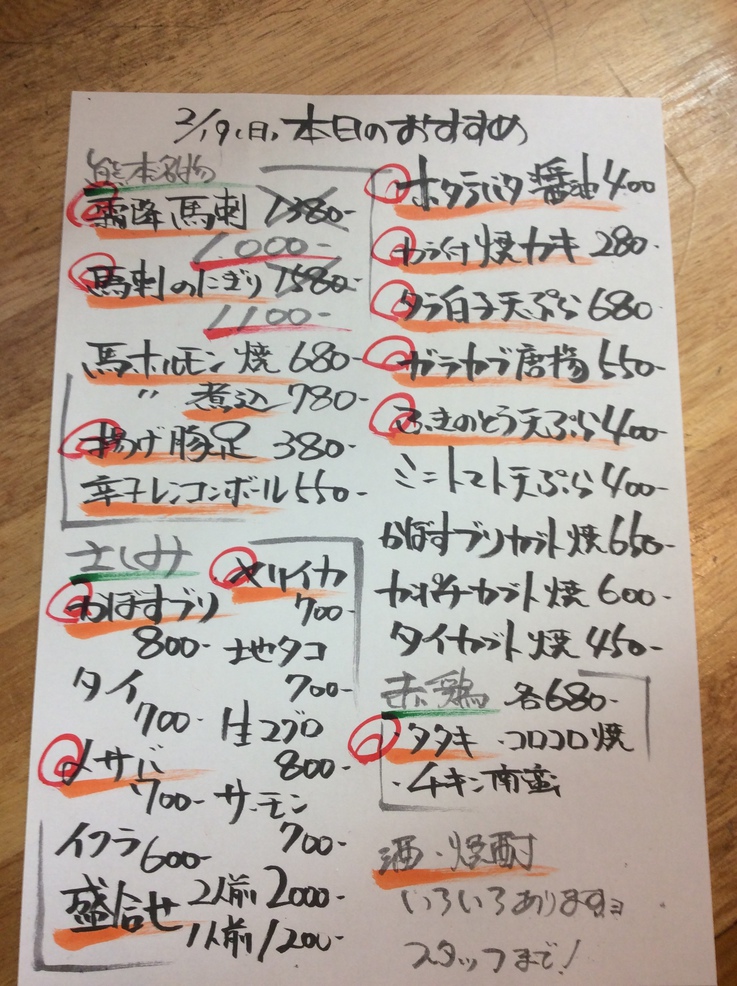 2/19(日)本日のおすすめ
熊本名物
霜降馬刺 1380-
1000-
馬刺のにぎり 1580-
1100-
馬ホルモン焼 680-
〃 煮込 780-
揚げ豚足 380-
辛子レンコンボール 550-
さしみ
かぼすブリ
800-
タイ
700-
〆サバ
700-
イクラ 600-
盛合せ 2人前 2000-
1人前 1200-
ヤリイカ
700-
地タコ
700-
生マグロ
800-
サーモン
700-
ホタテバタ醤油 400
カラ付焼カキ 280-
タラ白子天ぷら 680
ガラカブ唐揚 550-
ふきのとう天ぷら 400-
ミニトマト天ぷら 400-
かぼすブリカブト焼 650-
カンパチカブト焼 600-
タイカブト焼 450-
赤鶏 各680-
・タタキ ・コロコロ焼
・チキン南蛮
酒・焼酎
いろいろあります
スタッフまで!